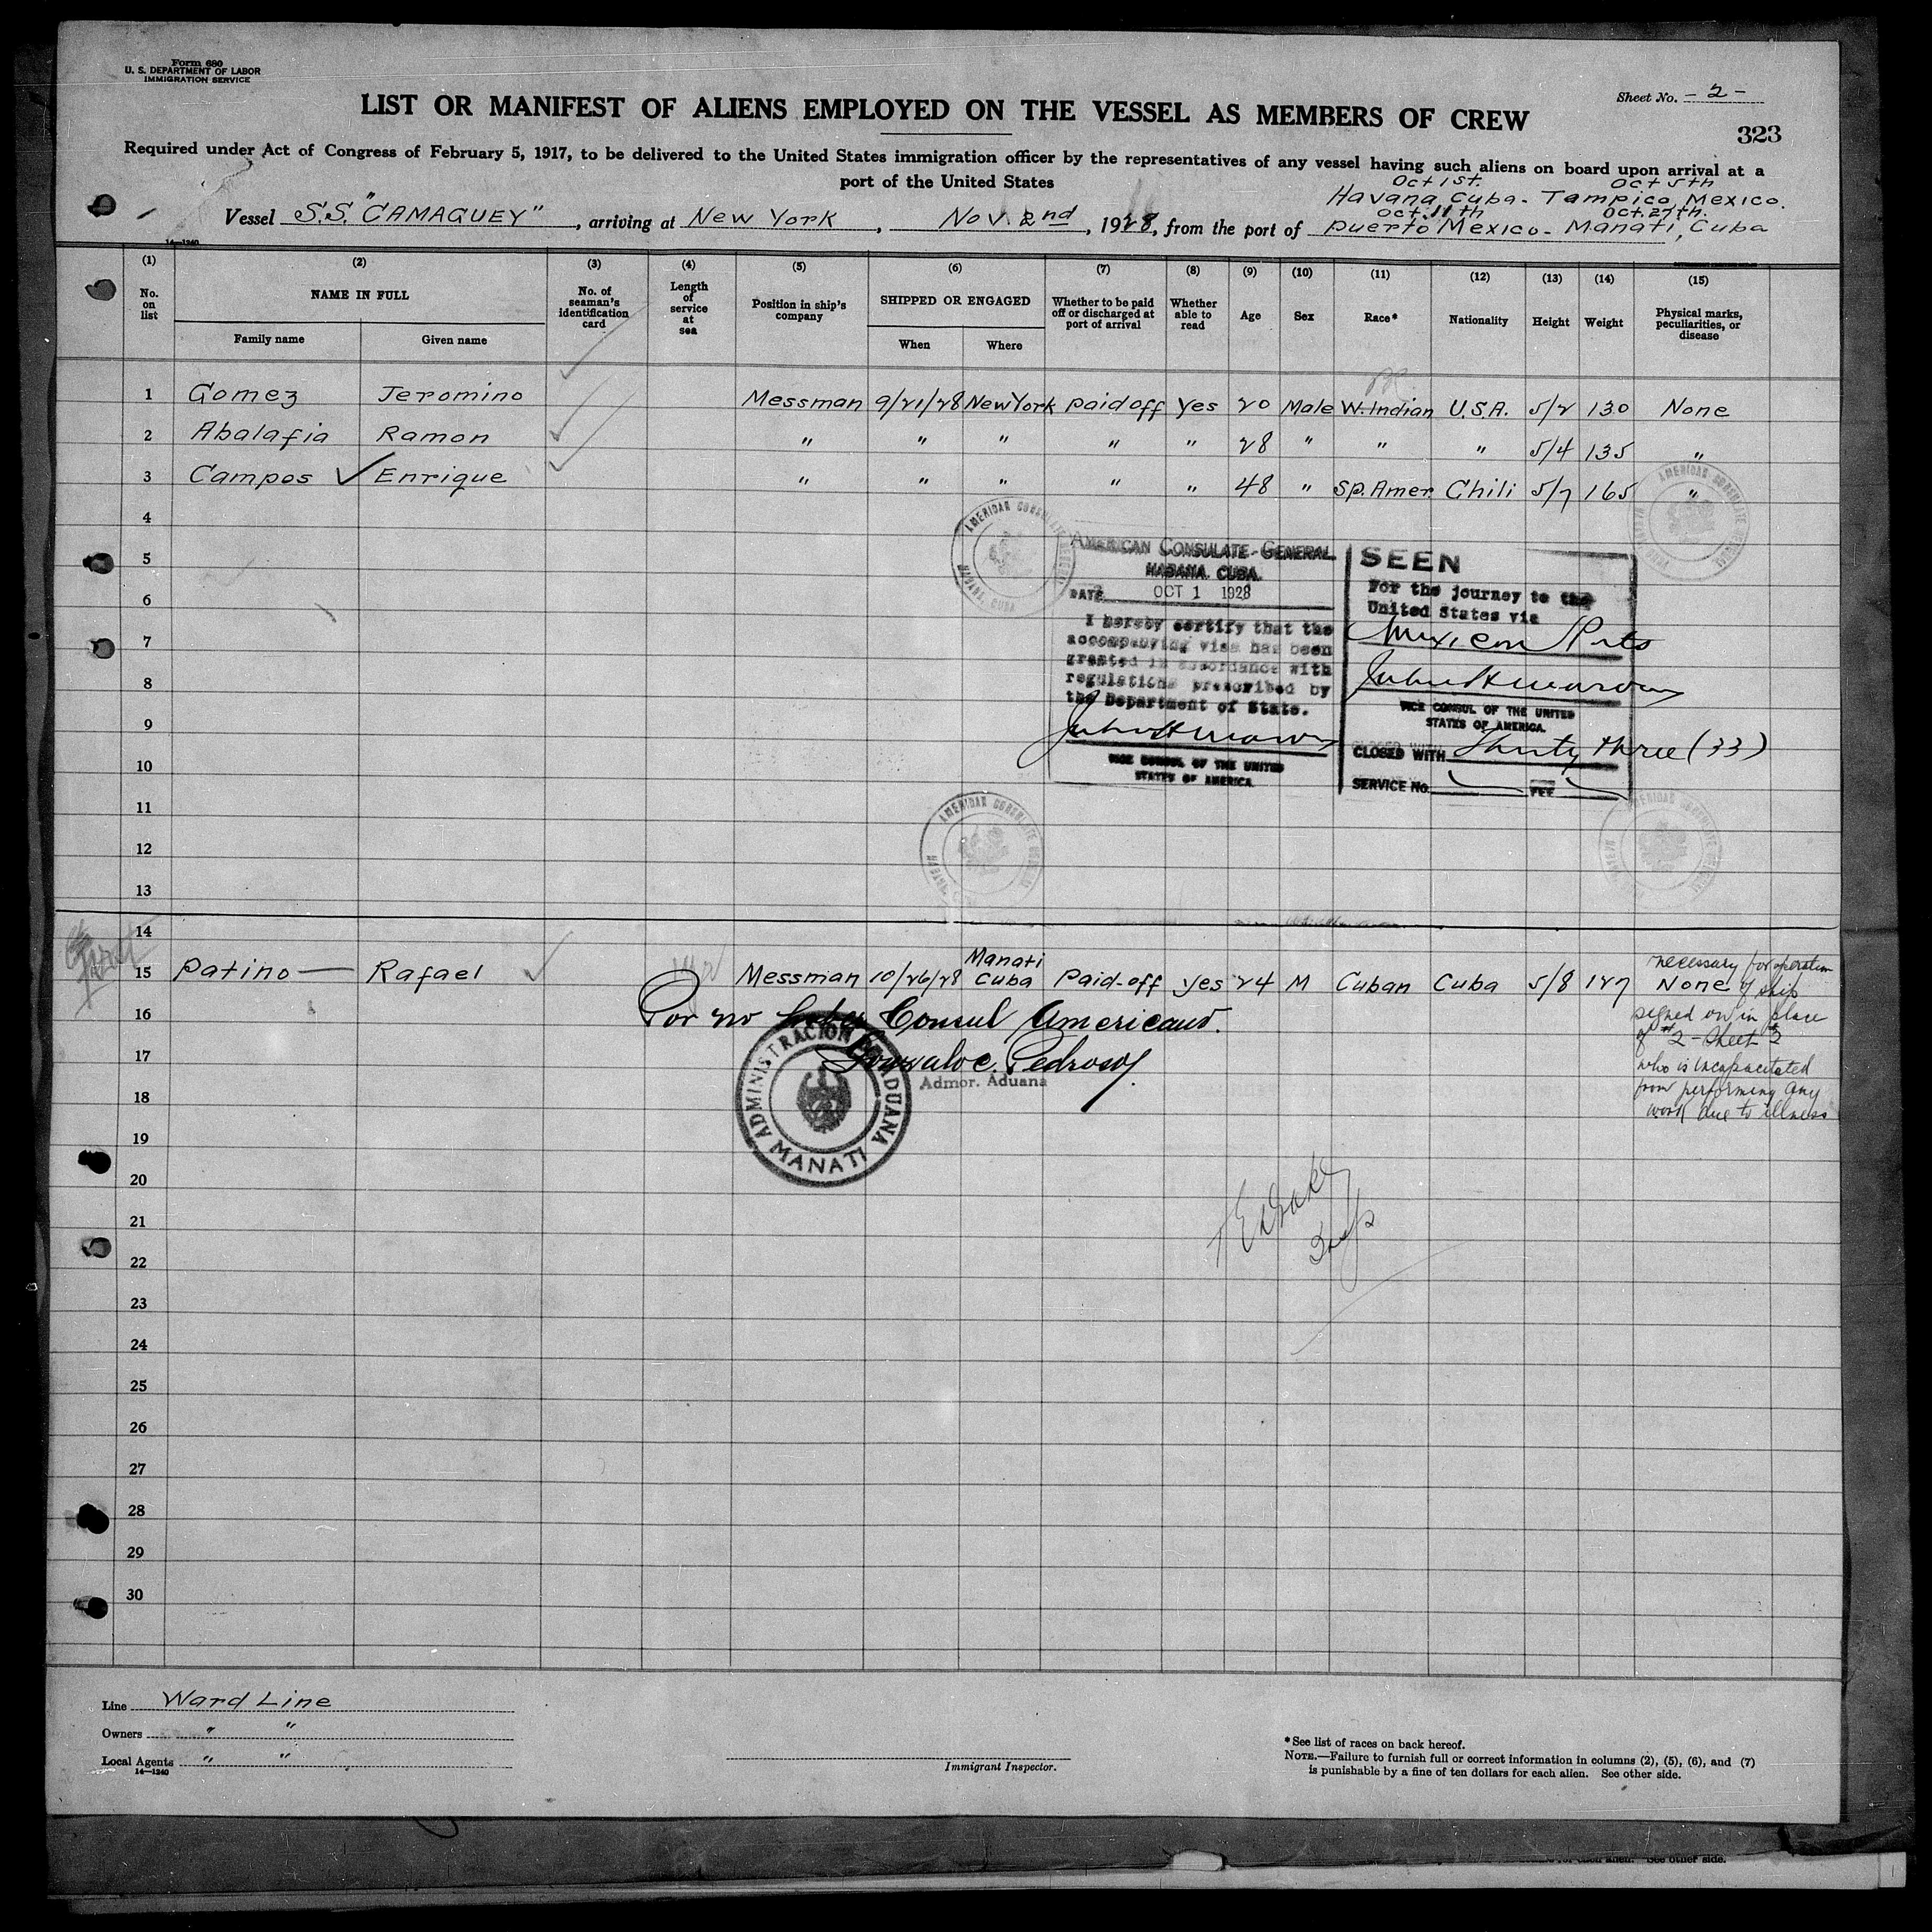 Form 680
U. S. DEPARTMENT OF LABOR
IMMIGRATION SERVICE
Sheet No. - 2 -
LIST OR MANIFEST OF ALIENS EMPLOYED ON THE VESSEL AS MEMBERS OF CREW
323
Required under Act of Congress of February 5, 1917, to be delivered to the United States immigration officer by the representatives of any vessel having such aliens on board upon arrival at a
port of the United States
Oct 1st. Oct 5th
Havana, Cuba - Tampico, Mexico.
Oct. 11th Oct. 27th.
Vessel S.S. "CAMAGUEY", arriving at New York, Nov. 2nd, 1928, from the port of Puerto Mexico - Manati, Cuba
14—1240
(1) (2) (3) (4) (5) (6) (7) (8) (9) (10) (11) (12) (13) (14) (15)
No. on list
NAME IN FULL
Family name
Given name
No. of seaman's identification card
Length of service at sea
Position in ship's company
SHIPPED OR ENGAGED
When
Where
Whether to be paid off or discharged at port of arrival
Whether able to read
Age
Sex
Race*
Nationality
Height
Weight
Physical marks, peculiarities, or disease
1 Gomez Jeromino Messman 9/21/28 New York paid off yes 20 Male W. Indian U.S.A. 5/2 130 None
2 Abalafia Ramon " " " " " 28 " " " 5/4 135 "
3 Campos Enrique " " " " " 48 " Sp. Amer. Chili 5/7 165 "
4
5
6
7
8
9
10
11
12
13
AMERICAN CONSULATE-GENERAL
HABANA. CUBA.
DATE OCT 1 1928
I hereby certify that the
accompanying visa has been
granted in accordance with
regulations prescribed by
the Department of State.
VICE CONSUL OF THE UNITED
STATES OF AMERICA.
SEEN
For the journey to the
United States via
Mexican Ports
VICE CONSUL OF THE UNITED
STATES OF AMERICA.
CLOSED WITH Thirty three (33)
SERVICE No. FEE
14
15 Patino Rafael Messman 10/26/28 Manati Cuba Paid-off yes 24 M Cuban Cuba 5/8 127 None
necessary for operation
of ship
signed on in place
of #2 - Sheet 2
who is incapacitated
from performing any
work due to illness
Por no haber Consul Americano.
Gonzalo C. Pedroso
Admor. Aduana
ADMINISTRACION DE ADUANA
MANATI
16
17
18
19
20
21
22
23
24
25
26
27
28
29
30
Line Ward Line
Owners " "
Local Agents " "
14—1240
Immigrant Inspector.
*See list of races on back hereof.
NOTE.—Failure to furnish full or correct information in columns (2), (5), (6), and (7)
is punishable by a fine of ten dollars for each alien. See other side.
See other side.